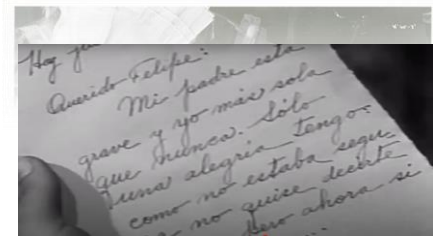 Hoy
Querido Felipe:
Mi padre está
grave y yo más sola
que nunca. Sólo
una alegría tengo:
como no estaba segu
no quise decirte
Pero ahora si